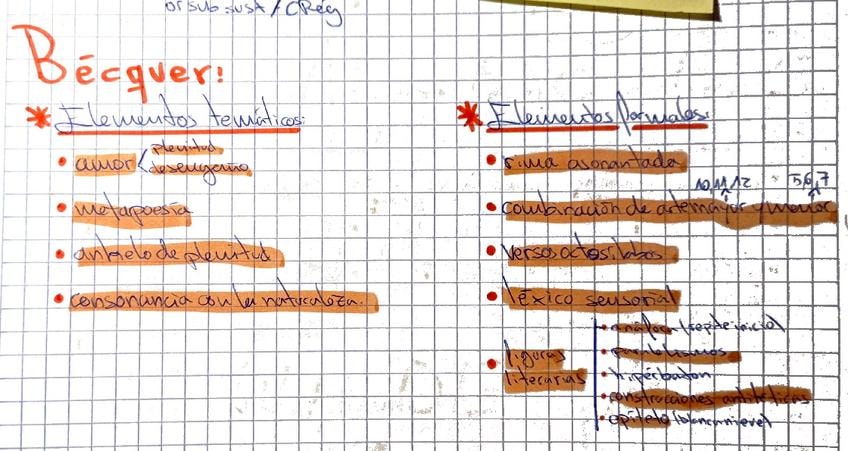 or sub. sust / CRég
Bécquer:
* Elementos temáticos:
• amor < plenitud
desengaño
• metapoesía
• anhelo de plenitud
• consonancia con la naturaleza.
* Elementos formales:
• rima asonantada
10, 11, 12 5, 6, 7
• combinación de arte mayor / menor
• versos octosílabos
• léxico sensorial
• figuras
literarias
• anáfora (repte inicio)
• paralelismos
• hipérbaton
• construcciones antitéticas
• epíteto (blanca nieve)